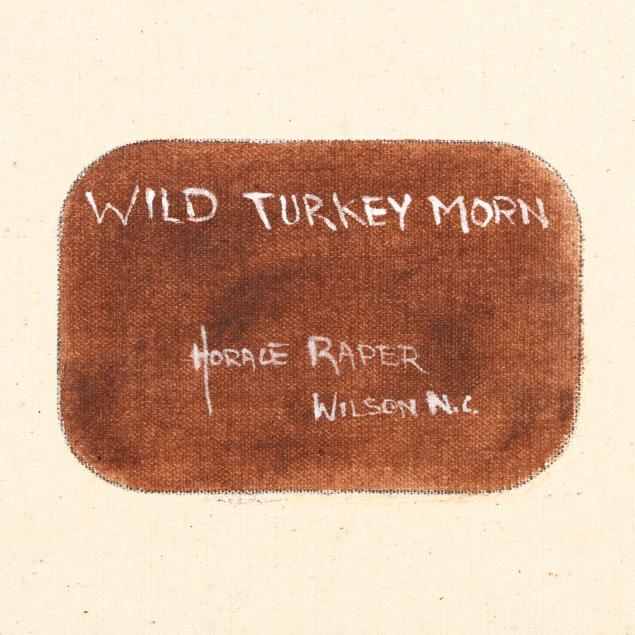 WILD TURKEY MORN
HORACE RAPER
WILSON N.C.